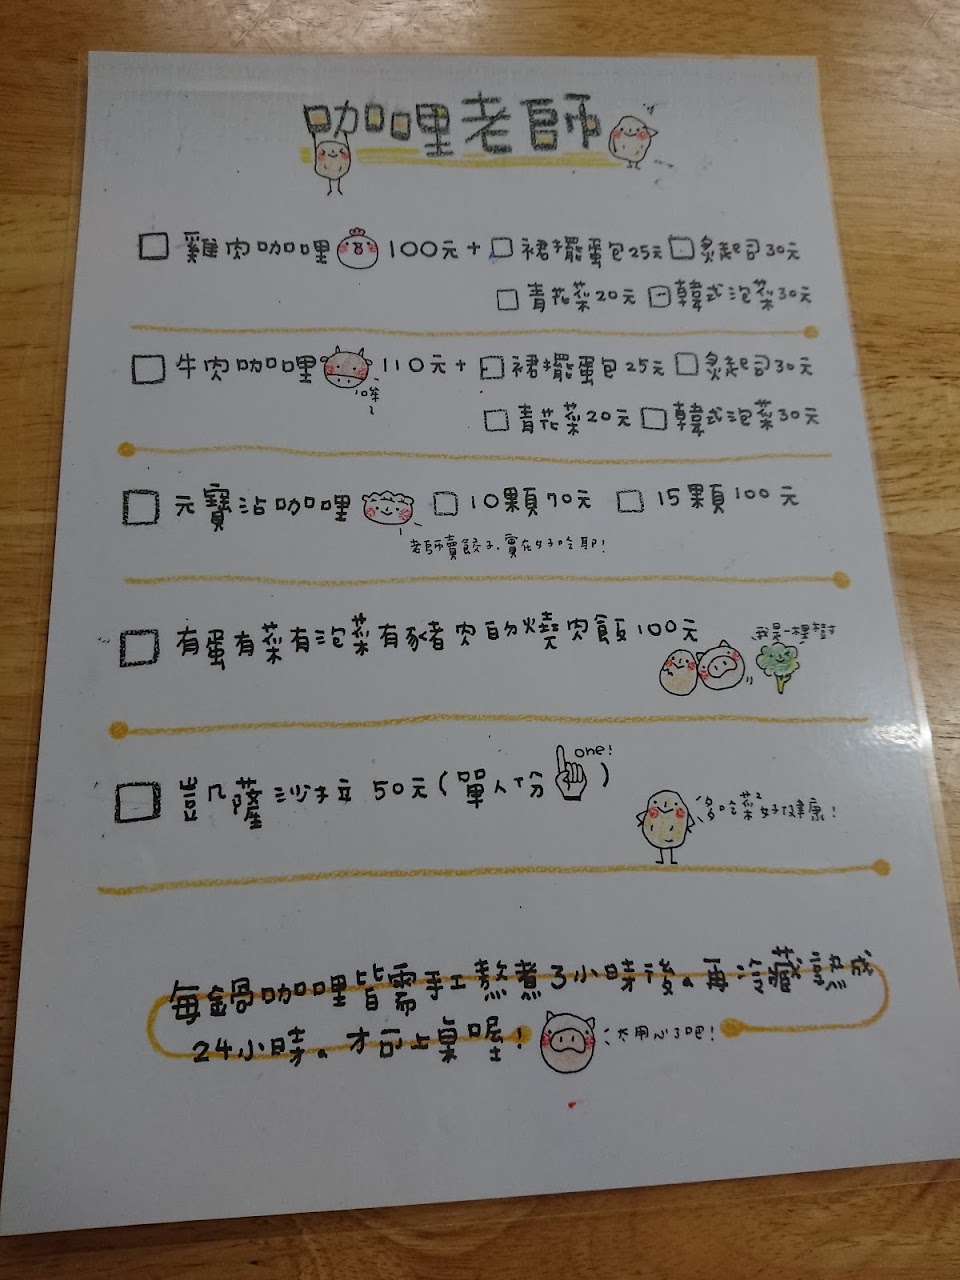 咖哩老師
□ 雞肉咖哩 100元 + □ 裙擺蛋包25元 □ 炙起司30元
□ 青花菜20元 □ 韓式泡菜30元
□ 牛肉咖哩 110元 + □ 裙擺蛋包25元 □ 炙起司30元
哞
□ 青花菜20元 □ 韓式泡菜30元
□ 元寶沾咖哩 □ 10顆70元 □ 15顆100元
老師賣餃子,實在好吃耶!
□ 有蛋有菜有泡菜有豬肉的燒肉飯100元
我是一棵樹
□ 豈几薩沙拉 50元(單人份 one!)
多吃菜 好健康!
每鍋咖哩皆需手工熬煮3小時後。再冷藏熟成
24小時。才可上桌喔!
太用心了吧!